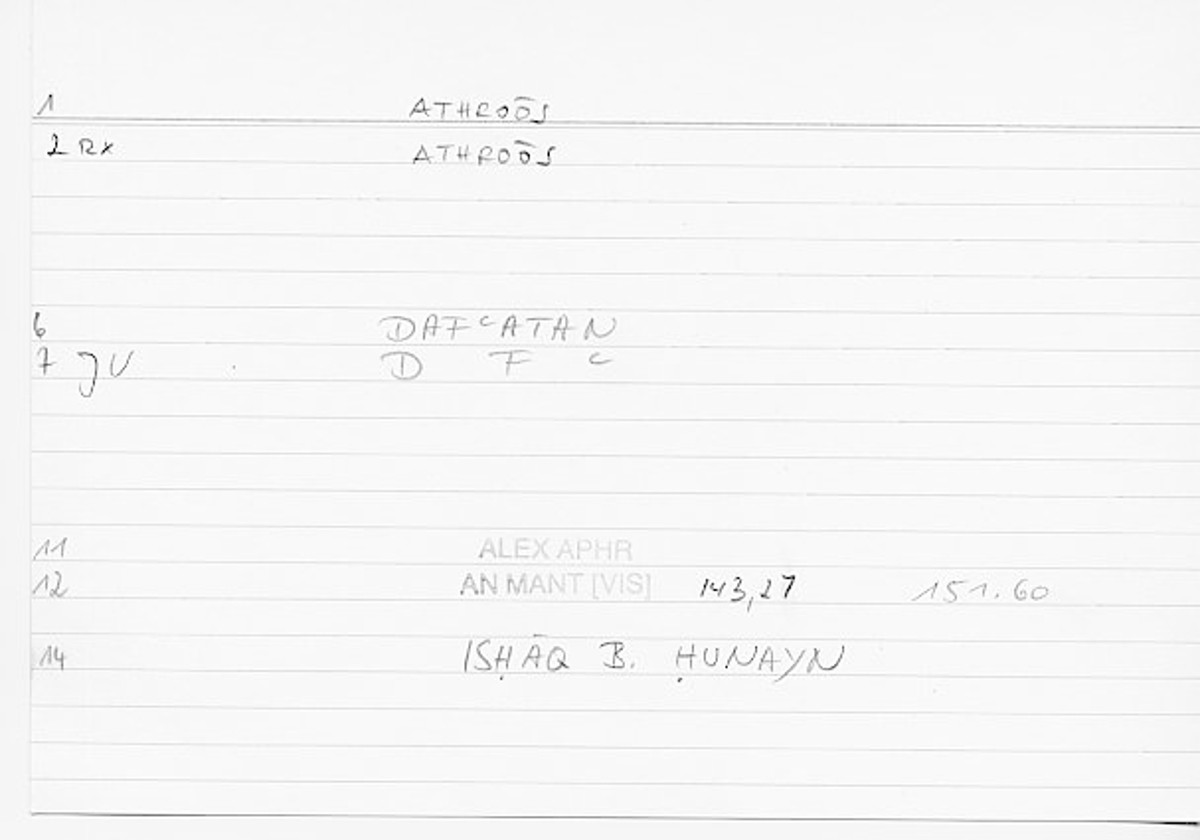 1 ATHROŌS
2 RX ATHROŌS
6 DAFᶜATAN
7 JV D F ᶜ
11 ALEX APHR
12 AN MANT [VIS] 143,27 151.60
14 ISḤĀQ B. ḤUNAYN